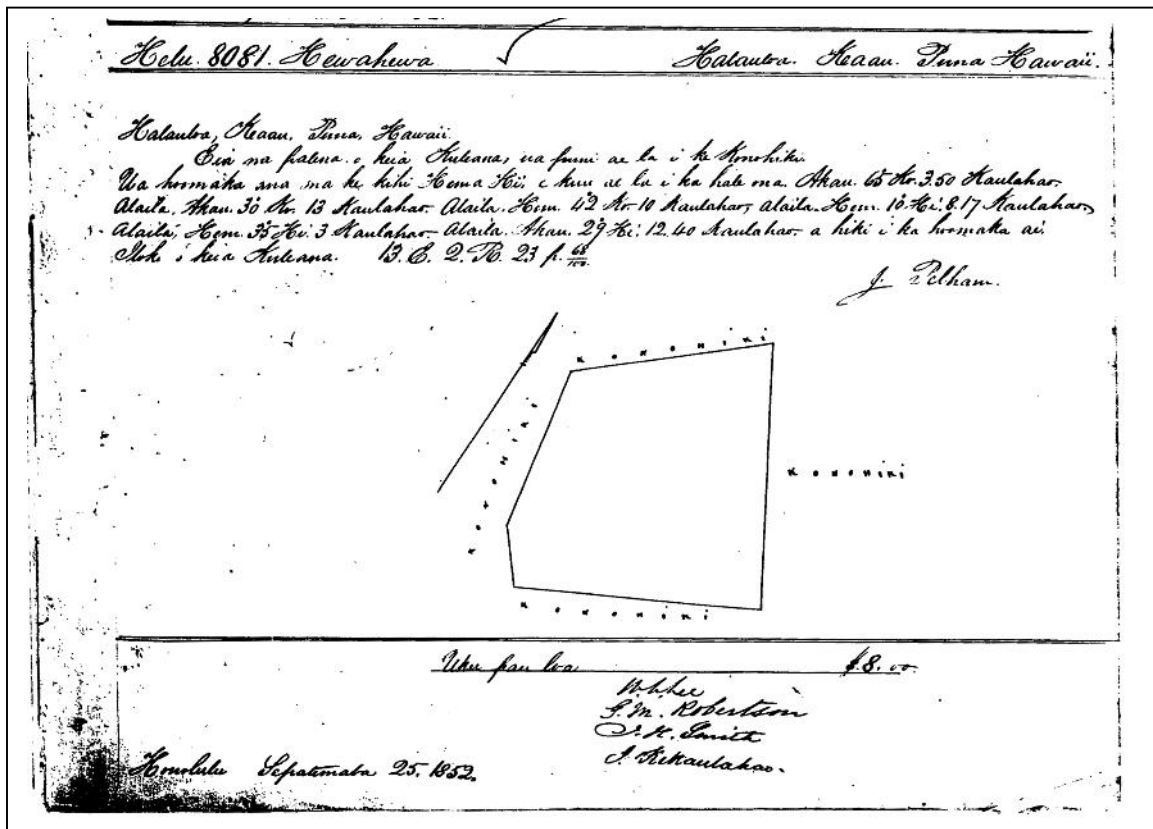 Helu. 8081. Hewahewa
Halauloa. Keaau. Puna Hawaii.
Halauloa, Keaau, Puna, Hawaii.
Eia na palena o keia Kuleana, ua puni ae la i ke Konohiki.
Ua hoomaka ana ma ke kihi Hema Hi, e kuu ae la i ka hale ona. Akau. 65° Ko. 3.50 Kaulahao.
Alaila, Akau. 30° Ko. 13 Kaulahao. Alaila. Hem. 42° Ko. 10 Kaulahao, alaila. Hem. 10° Hi. 8.17 Kaulahao,
Alaila, Hem. 35° Hi. 3 Kaulahao. Alaila. Akau. 29° Hi. 12.40 Kaulahao. a hiki i ka hoomaka ai.
Iloko o keia Kuleana. 13. E. 2. R. 23 p. 68/100
J. Pelham.
KONOHIKI
KONOHIKI
KONOHIKI
KONOHIKI
Uku pau loa $8.00
W. L. Lee
G. M. Robertson
J. H. Smith
J. Kekaulahao.
Honolulu Sepatemaba 25. 1852.